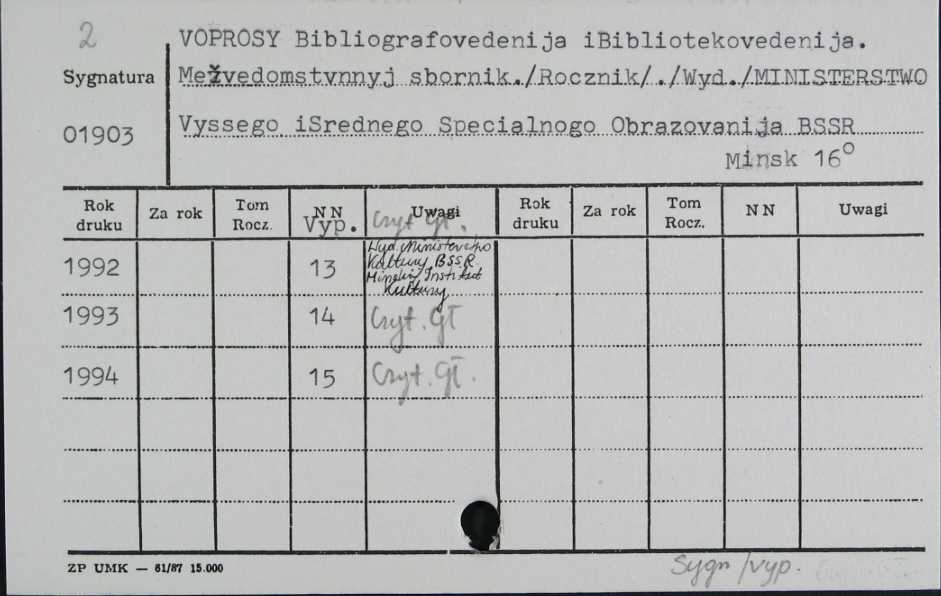 2
VOPROSY Bibliografovedenija iBibliotekovedenija.
Sygnatura
Mežvedomstvnnyj sbornik./Rocznik/./Wyd./MINISTERSTWO
01903
Vyssego iSrednego Specialnogo Obrazovanija BSSR
Minsk 16°
Rok druku Za rok Tom Rocz. NN Vyp. Uwagi Rok druku Za rok Tom Rocz. NN Uwagi
Czyt Gł.
1992 13 Wyd. Ministerstvo
Kultury BSSR
Minskij Institut
Kultury
1993 14 Czyt. Gł
1994 15 Czyt. Gł.
ZP UMK — 61/87 15.000
Sygn/vyp.